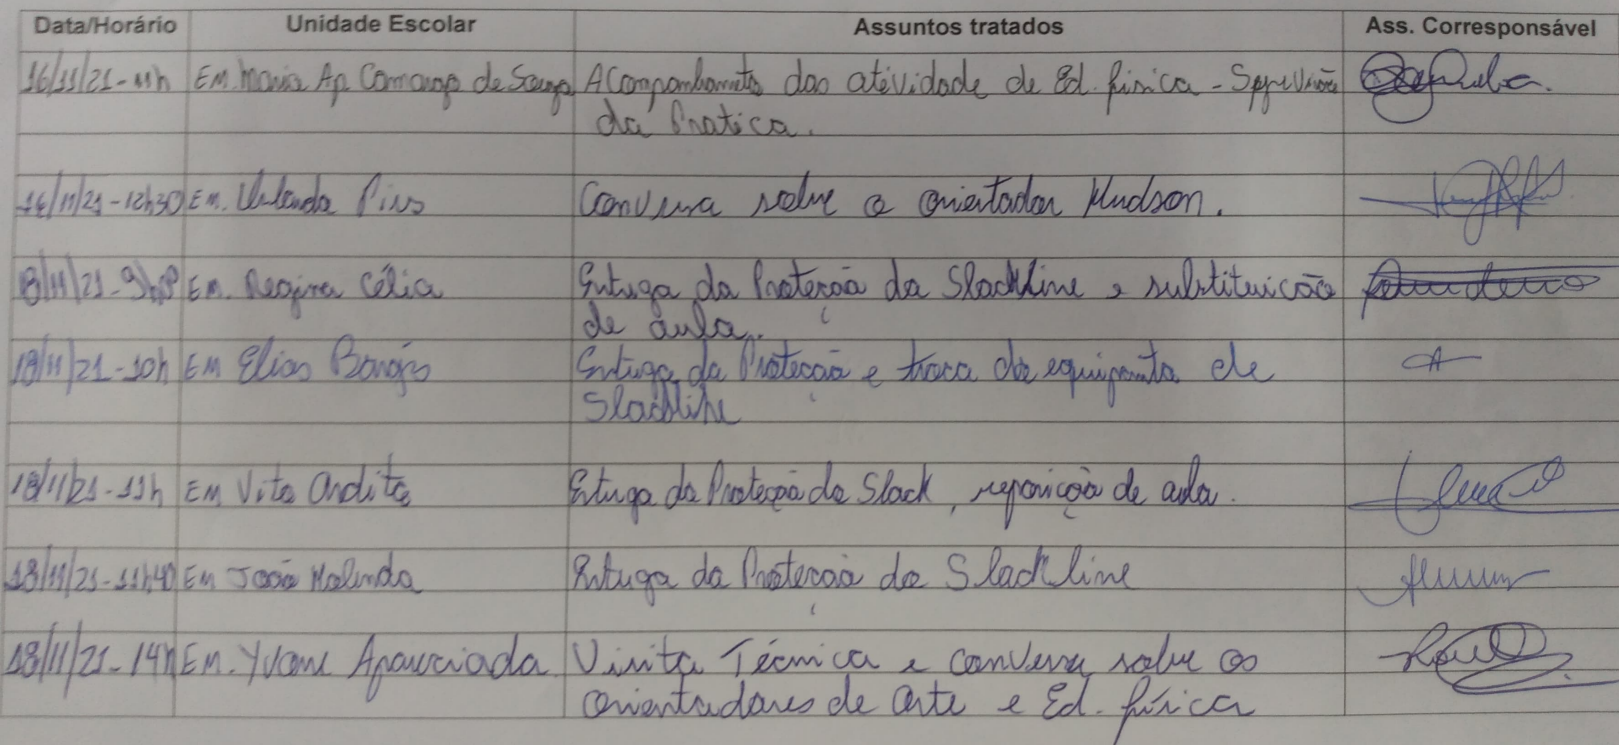 Data/Horário Unidade Escolar Assuntos tratados Ass. Corresponsável
16/11/21-11h EM. Maria Ap Camargo de Souza Acompanhamento das atividade de Ed. física - Supervisão
da Pratica.
16/11/21-12h30 EM. Pires Conversa sobre o orientador Hudson.
18/11/21- EM. Regina Célia Entrega da Proteção da Slackline e substituição
de aula.
18/11/21-10h EM Elias Entrega da Proteção e troca de equipamento de
Slackline
18/11/21-11h EM Vito Ardito Entrega da Proteção da Slack, reposição de aula.
18/11/21-11h40 EM João Entrega da Proteção da Slackline
18/11/21-14h EM. Yvone Aparecida Visita Técnica e conversa sobre os
orientadores de arte e Ed. física